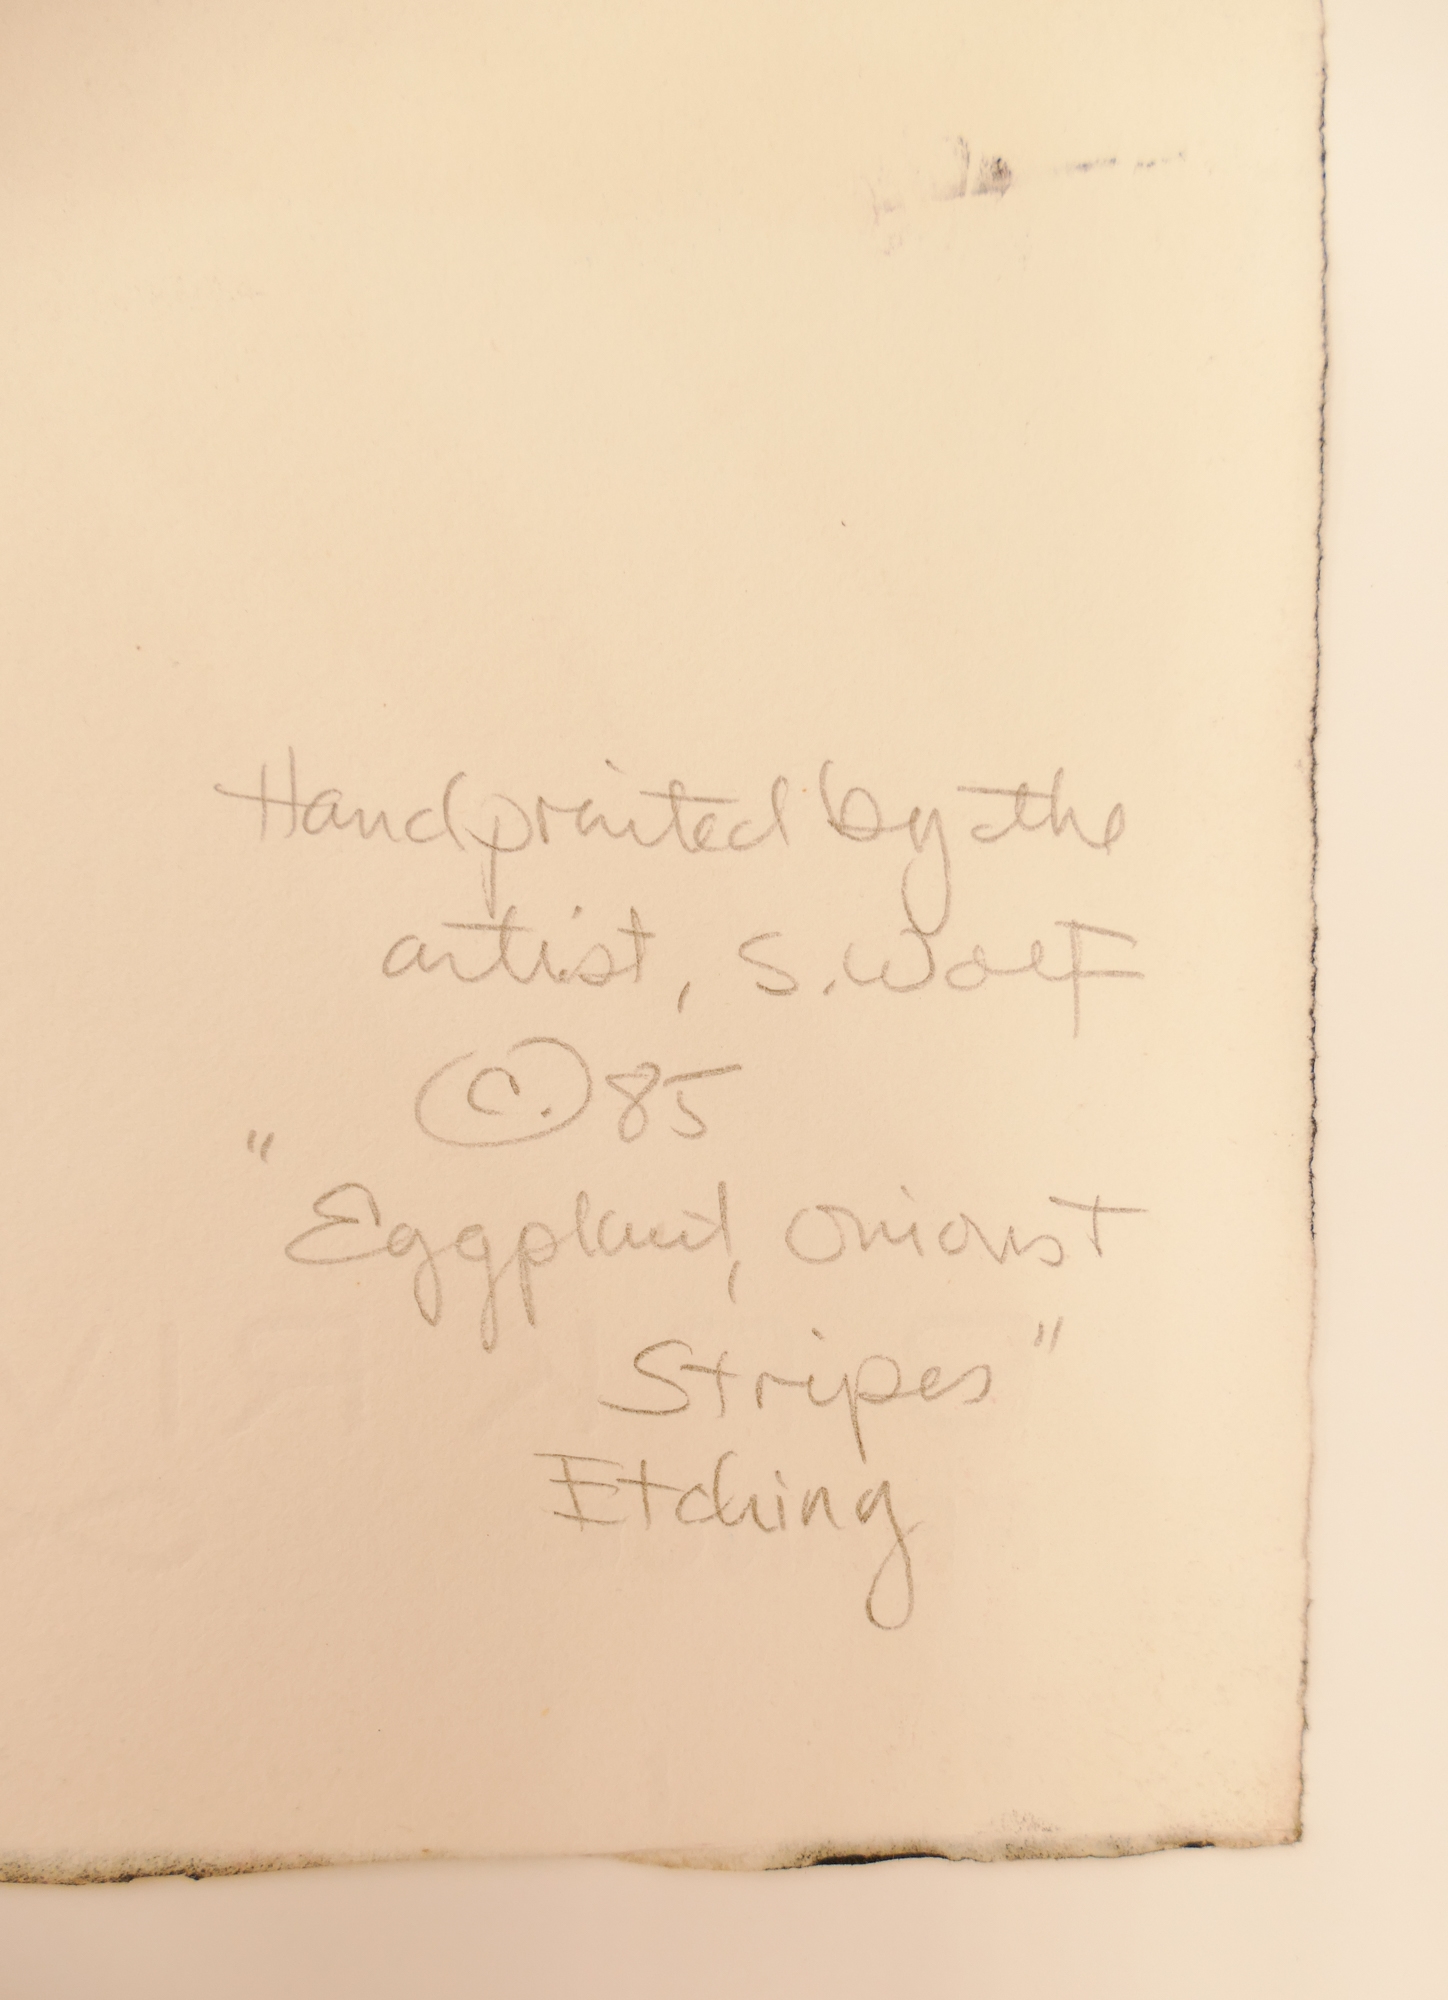 Handprinted by the
artist, S. Wolf
© 85
"Eggplant, Onions +
Stripes"
Etching